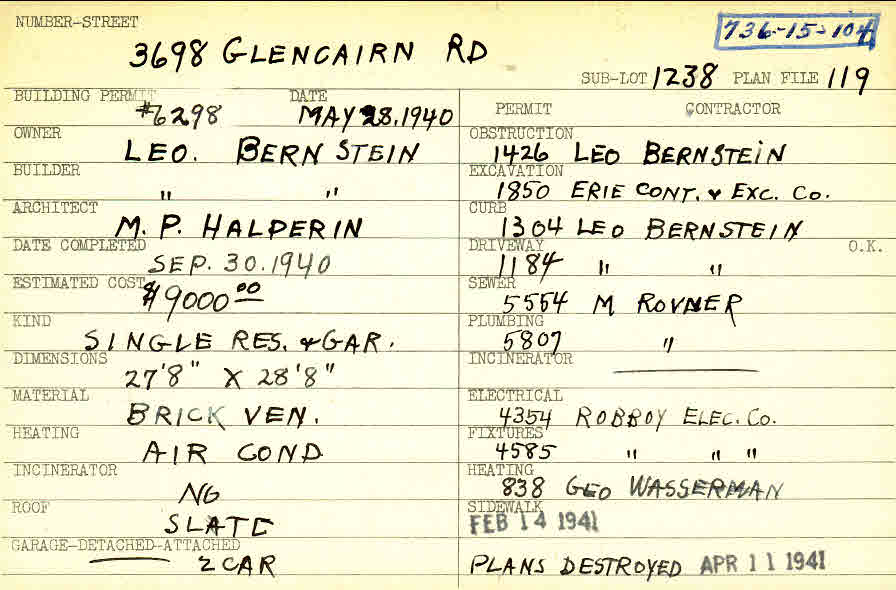 NUMBER-STREET
736-15-104
3698 GLENCAIRN RD
SUB-LOT 1238 PLAN FILE 119
BUILDING PERMIT DATE
#6298 MAY 28, 1940
OWNER
LEO. BERNSTEIN
BUILDER
" "
ARCHITECT
M. P. HALPERIN
DATE COMPLETED
SEP. 30. 1940
ESTIMATED COST
$9000.00
KIND
SINGLE RES. & GAR.
DIMENSIONS
27'8" X 28'8"
MATERIAL
BRICK VEN.
HEATING
AIR COND
INCINERATOR
NO
ROOF
SLATE
GARAGE-DETACHED-ATTACHED
2 CAR
PERMIT CONTRACTOR
OBSTRUCTION
1426 LEO BERNSTEIN
EXCAVATION
1850 ERIE CONT. & EXC. CO.
CURB
1304 LEO BERNSTEIN
DRIVEWAY O.K.
1184 " "
SEWER
5554 M ROVNER
PLUMBING
5807 "
INCINERATOR
ELECTRICAL
4354 ROBBOY ELEC. CO.
FIXTURES
4585 " " "
HEATING
838 GEO WASSERMAN
SIDEWALK
FEB 14 1941
PLANS DESTROYED APR 11 1941